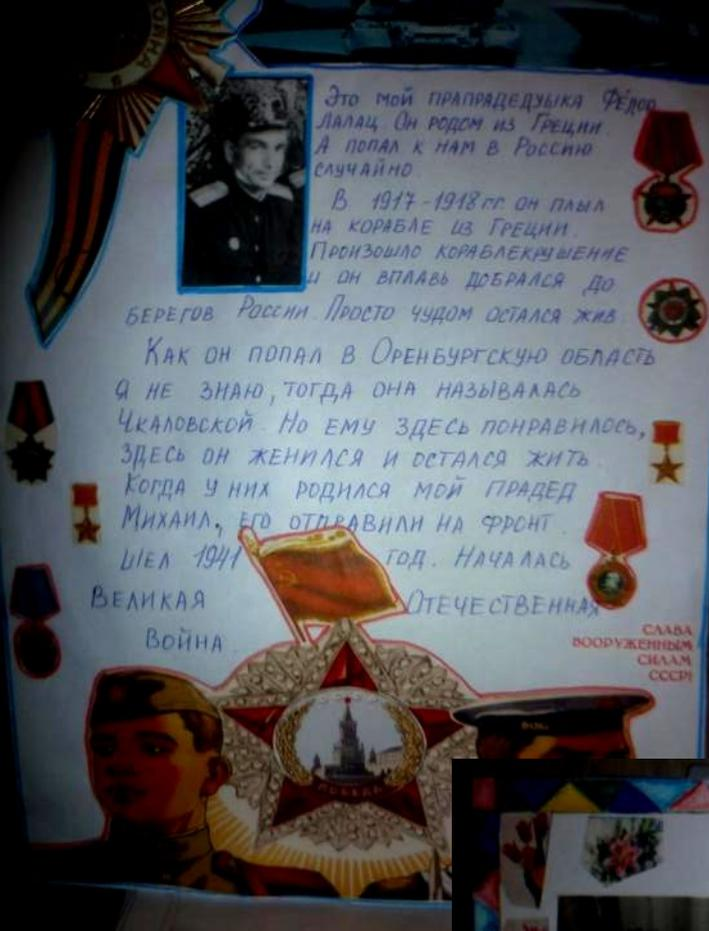 ВОЙНА
Это мой прапрадедушка Фёдор
Лалац. Он родом из Греции.
А попал к нам в Россию
случайно.
В 1917-1918 гг. он плыл
на корабле из Греции.
Произошло кораблекрушение
и он вплавь добрался до
берегов России. Просто чудом остался жив.
Как он попал в Оренбургскую область
я не знаю, тогда она называлась
Чкаловской. Но ему здесь понравилось,
здесь он женился и остался жить.
Когда у них родился мой прадед
Михаил, его отправили на фронт.
Шел 1941 год. Началась
Великая Отечественная
война
СЛАВА
ВООРУЖЕННЫМ
СИЛАМ
СССР!
ПОБЕДА